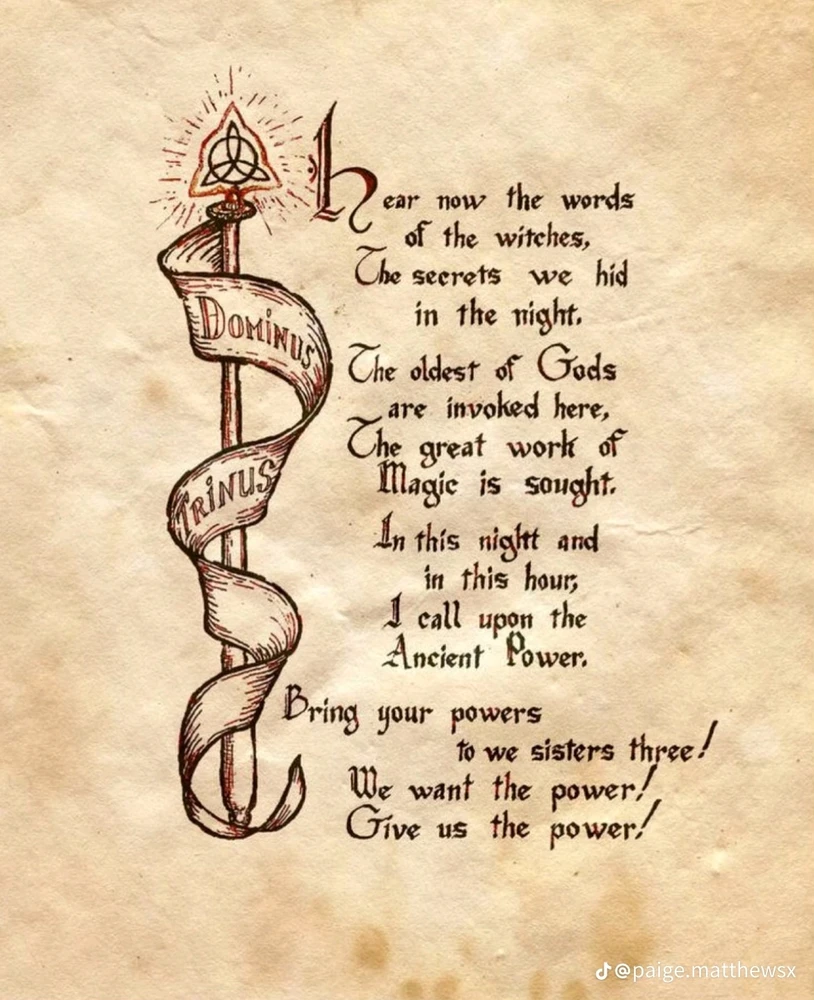 Hear now the words
of the witches,
The secrets we hid
in the night.
The oldest of Gods
are invoked here,
The great work of
Magic is sought.
In this night and
in this hour,
I call upon the
Ancient Power.
Bring your powers
to we sisters three!
We want the power!
Give us the power!
DOMINUS
TRINUS
@paige.matthewsx